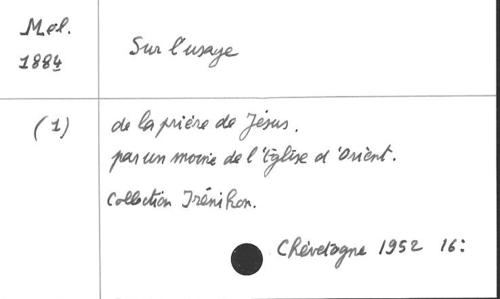 Mel.
1884
Sur l'usage
(1)
de la prière de Jésus.
par un moine de l'Eglise d'Orient.
Collection Irénikon.
Chèvetogne 1952 16: